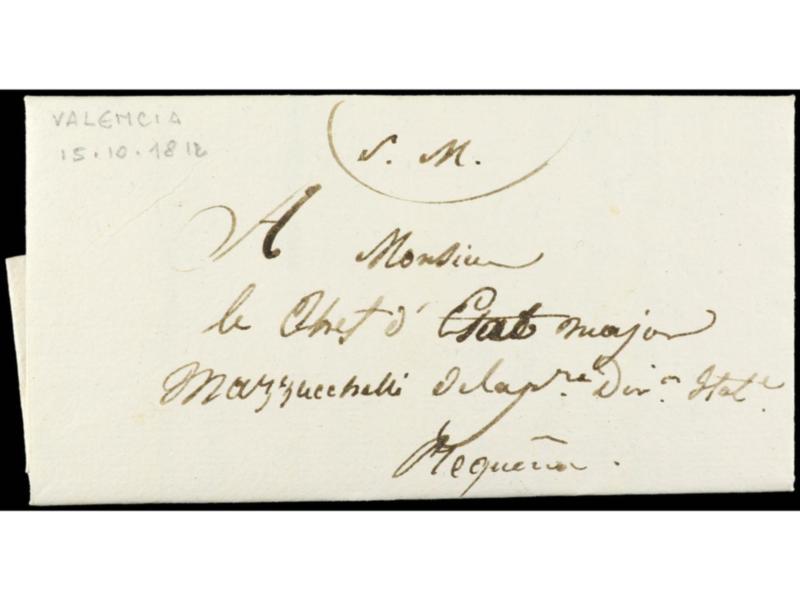 VALENCIA
15.10.1812
S. M.
A Monsieur
le Chef d'Etat major
Mazzucchelli de la pre Divn Itale
Requeña.